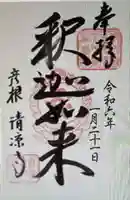 奉拝
令和六年
一月二十一日
釈迦如来
彦根 清凉寺